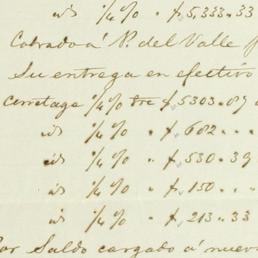 id ¼% " $ 5,333.33
Cobrado á P. del Valle
Su entrega en efectivo
Corretage ¼% tre $ 5303.87
id ¼% " $ 682 "
id ¼% " $ 530.39
id ¼% " $ 150 "
id ¼% " $ 213.33
Por Saldo cargado á nuev